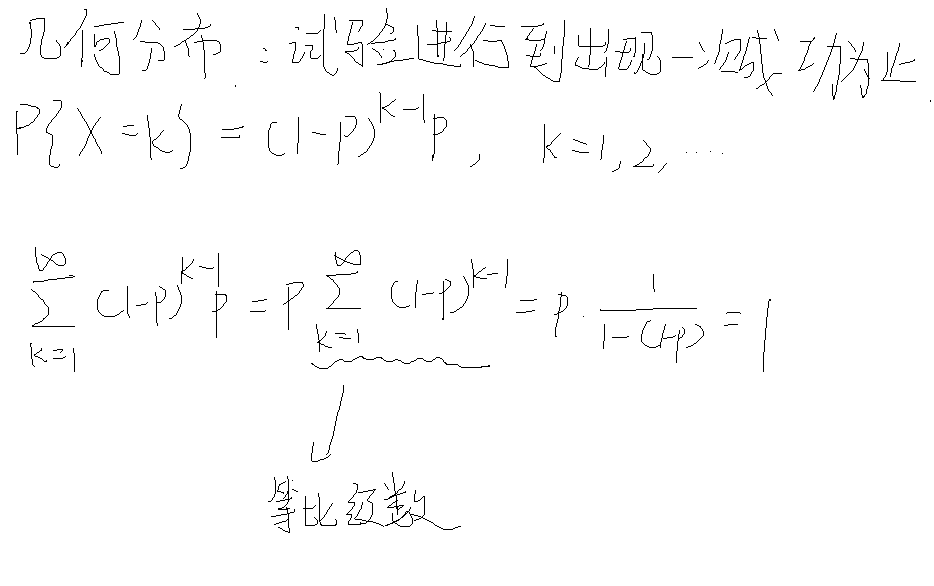 几何分布：试验进行到出现一次成功为止.
P{X=k} = (1-p)^{k-1}p, k=1,2,....
∑_{k=1}^{∞} (1-p)^{k-1}p = p∑_{k=1}^{∞} (1-p)^{k-1} = p·\frac{1}{1-(1-p)} = 1
等比级数